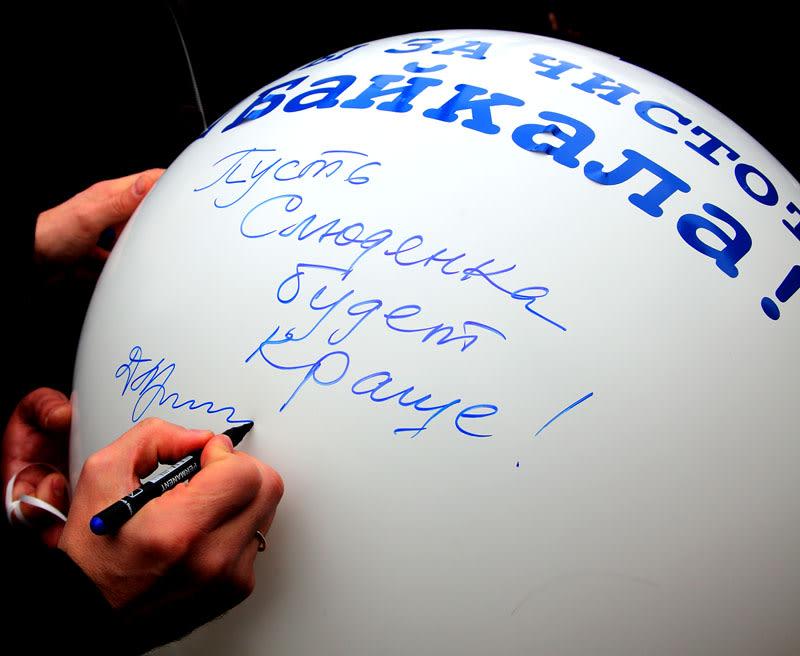 ЗА ЧИСТОТ
Байкала!
Пусть
Слюденка
будет
краще!
PERMANENT